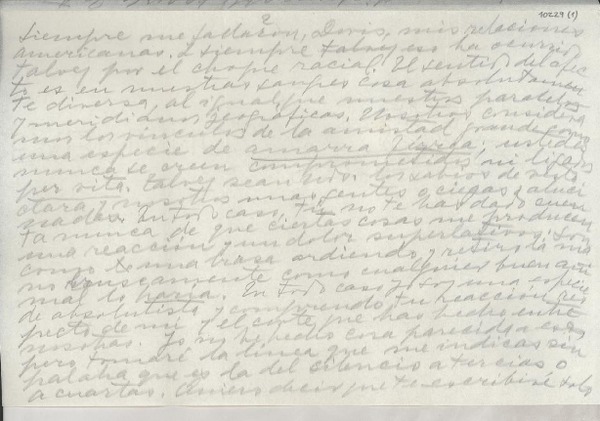 2
10229 (1)
Siempre me fallaron, Doris, mis relaciones
americanas. Y siempre talvez eso ha ocurrido
talvez por el choque racial. El sentido del afec-
to es en nuestras sangres cosa absolutamen-
te diversa, al igual que nuestros paralelos
y meridianos geográficos. Nosotros considera
mos los vínculos de la amistad grande como
una especie de amarra ; ustedes
nunca se creen comprometidos ni ligados
per vita. Talvez sean Uds. los sabios de este
y nosotros unas gentes ciegas y aluci
nadas. En todo caso, tú no te has dado cuen
ta nunca de que ciertas cosas me producen
una reacción y un dolor superlativos. Son
como una brasa ardiendo y retiro la mano
no bruscamente como cualquier buen ani
mal lo haría. En todo caso yo soy una especie
de absolutista y comprendo tu reacción res
pecto de mí y el corte que has hecho entre
nosotras. Yo no he hecho cosa parecida a eso,
pero tomaré la línea que me indicas sin
palabra que es la del silencio a tercias o
a cuartas. Quiero decir que te escribiré solo